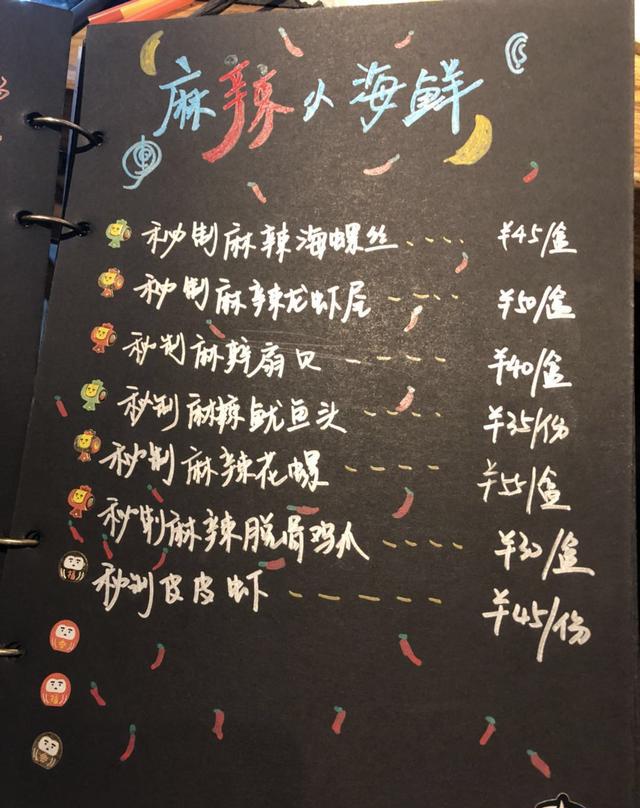 麻辣小海鲜
秘制麻辣海螺丝 ¥45/盒
秘制麻辣龙虾尾 ¥50/盒
秘制麻辣扇贝 ¥40/盒
秘制麻辣鱿鱼头 ¥35/份
秘制麻辣花螺 ¥55/盒
秘制麻辣脱骨鸡爪 ¥30/盒
秘制皮皮虾 ¥45/份